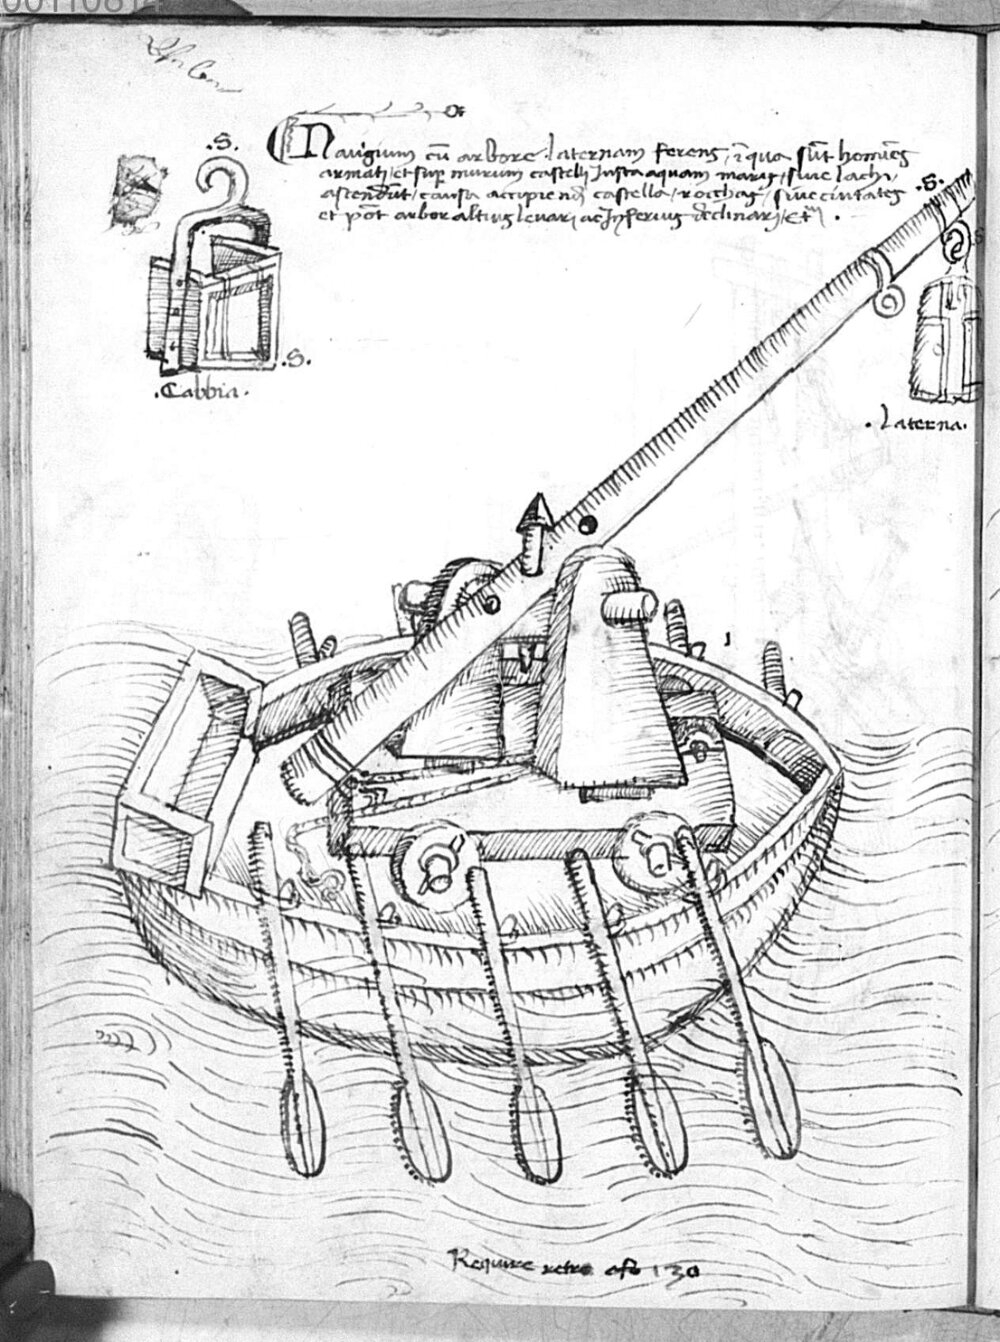 00110814
.S.
Nauigium cū arbore laternam ferens, ī qua sūt homines
armati, et sup murum castelli Iusta aquam maris, siue lachi,
ascendūt, causa accipiendi castella, rocchas, siue ciuitates
et pōt arbor altius leuari ac Inferius declinari, Et͞.
.S.
.S.
.Cabbia.
.Laterna.
Require retro afo 130